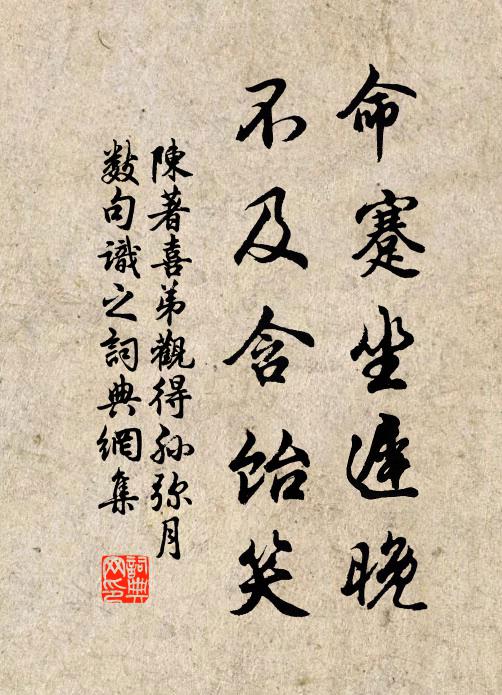 命蹇坐遲晚
不及含飴笑
陳著喜弟觀得孙弥月
數句識之詞典網集
詞典
网印